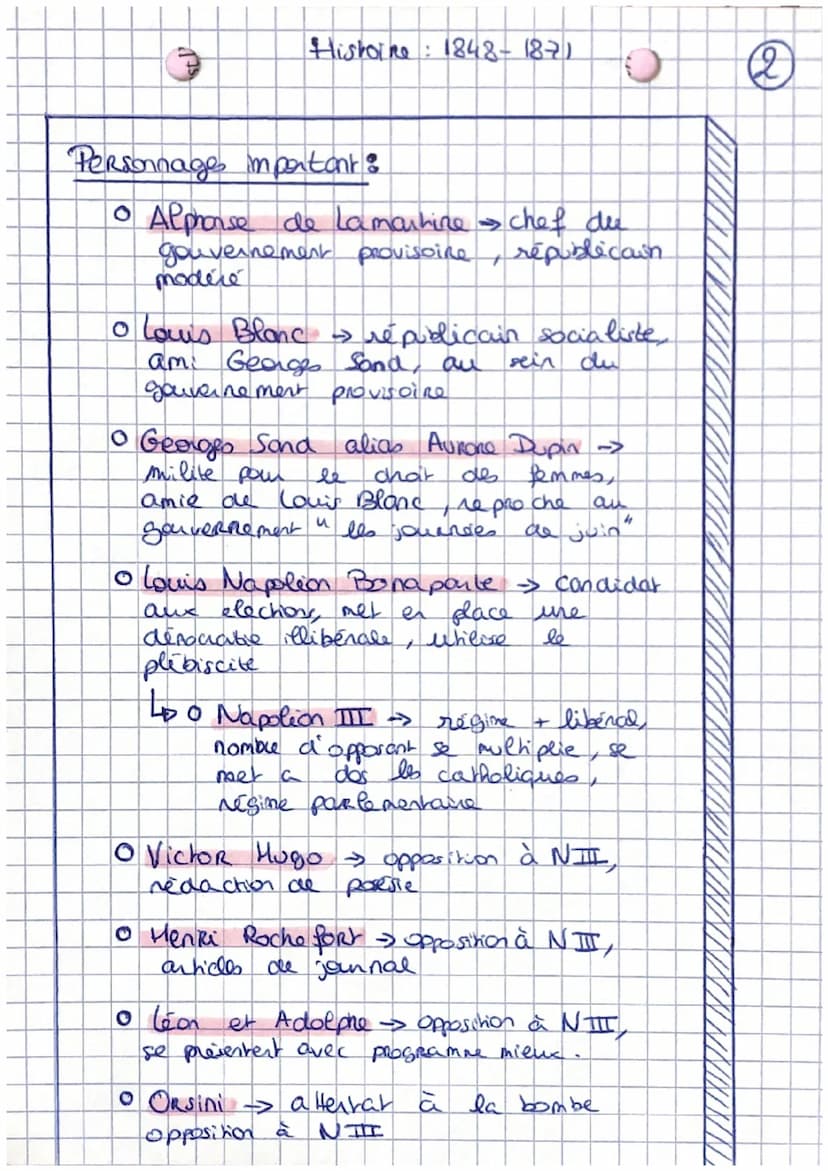 Histoire : 1848-1871
2
Personnages important :
Alphonse de Lamartine → chef du
gouvernement provisoire, républicain
modéré
Louis Blanc → républicain socialiste,
ami Georges Sand, au sein du
gouvernement provisoire
Georges Sand alias Aurore Dupin →
milite pour le droit des femmes,
amie de Louis Blanc, reproche au
gouvernement "les journées de juin"
Louis Napoléon Bonaparte → candidat
aux élections, met en place une
démocratie illibérale, utilise le
plébiscite
↳ Napoléon III → régime + libéral,
nombre d'opposant se multiplie, se
met a dos les catholiques,
régime parlementaire
Victor Hugo → opposition à NIII,
rédaction de poésie
Henri Rochefort → opposition à NIII,
articles de journal
Léon et Adolphe → opposition à NIII,
se présentent avec programme mieux.
Orsini → attentat à la bombe
opposition à NIII